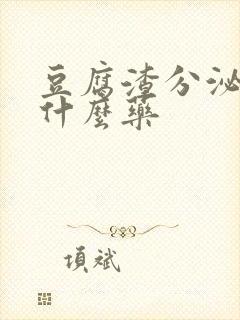 豆腐渣分泌
什麼藥
項斌